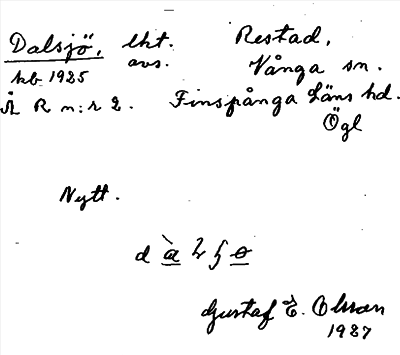 Dalsjö, lht. avs. Restad,
kb 1925 Vånga sn.
Å R n:r 2. Finspånga Läns hd.
Ögl
Nytt.
Gustaf E. Olsson
1927